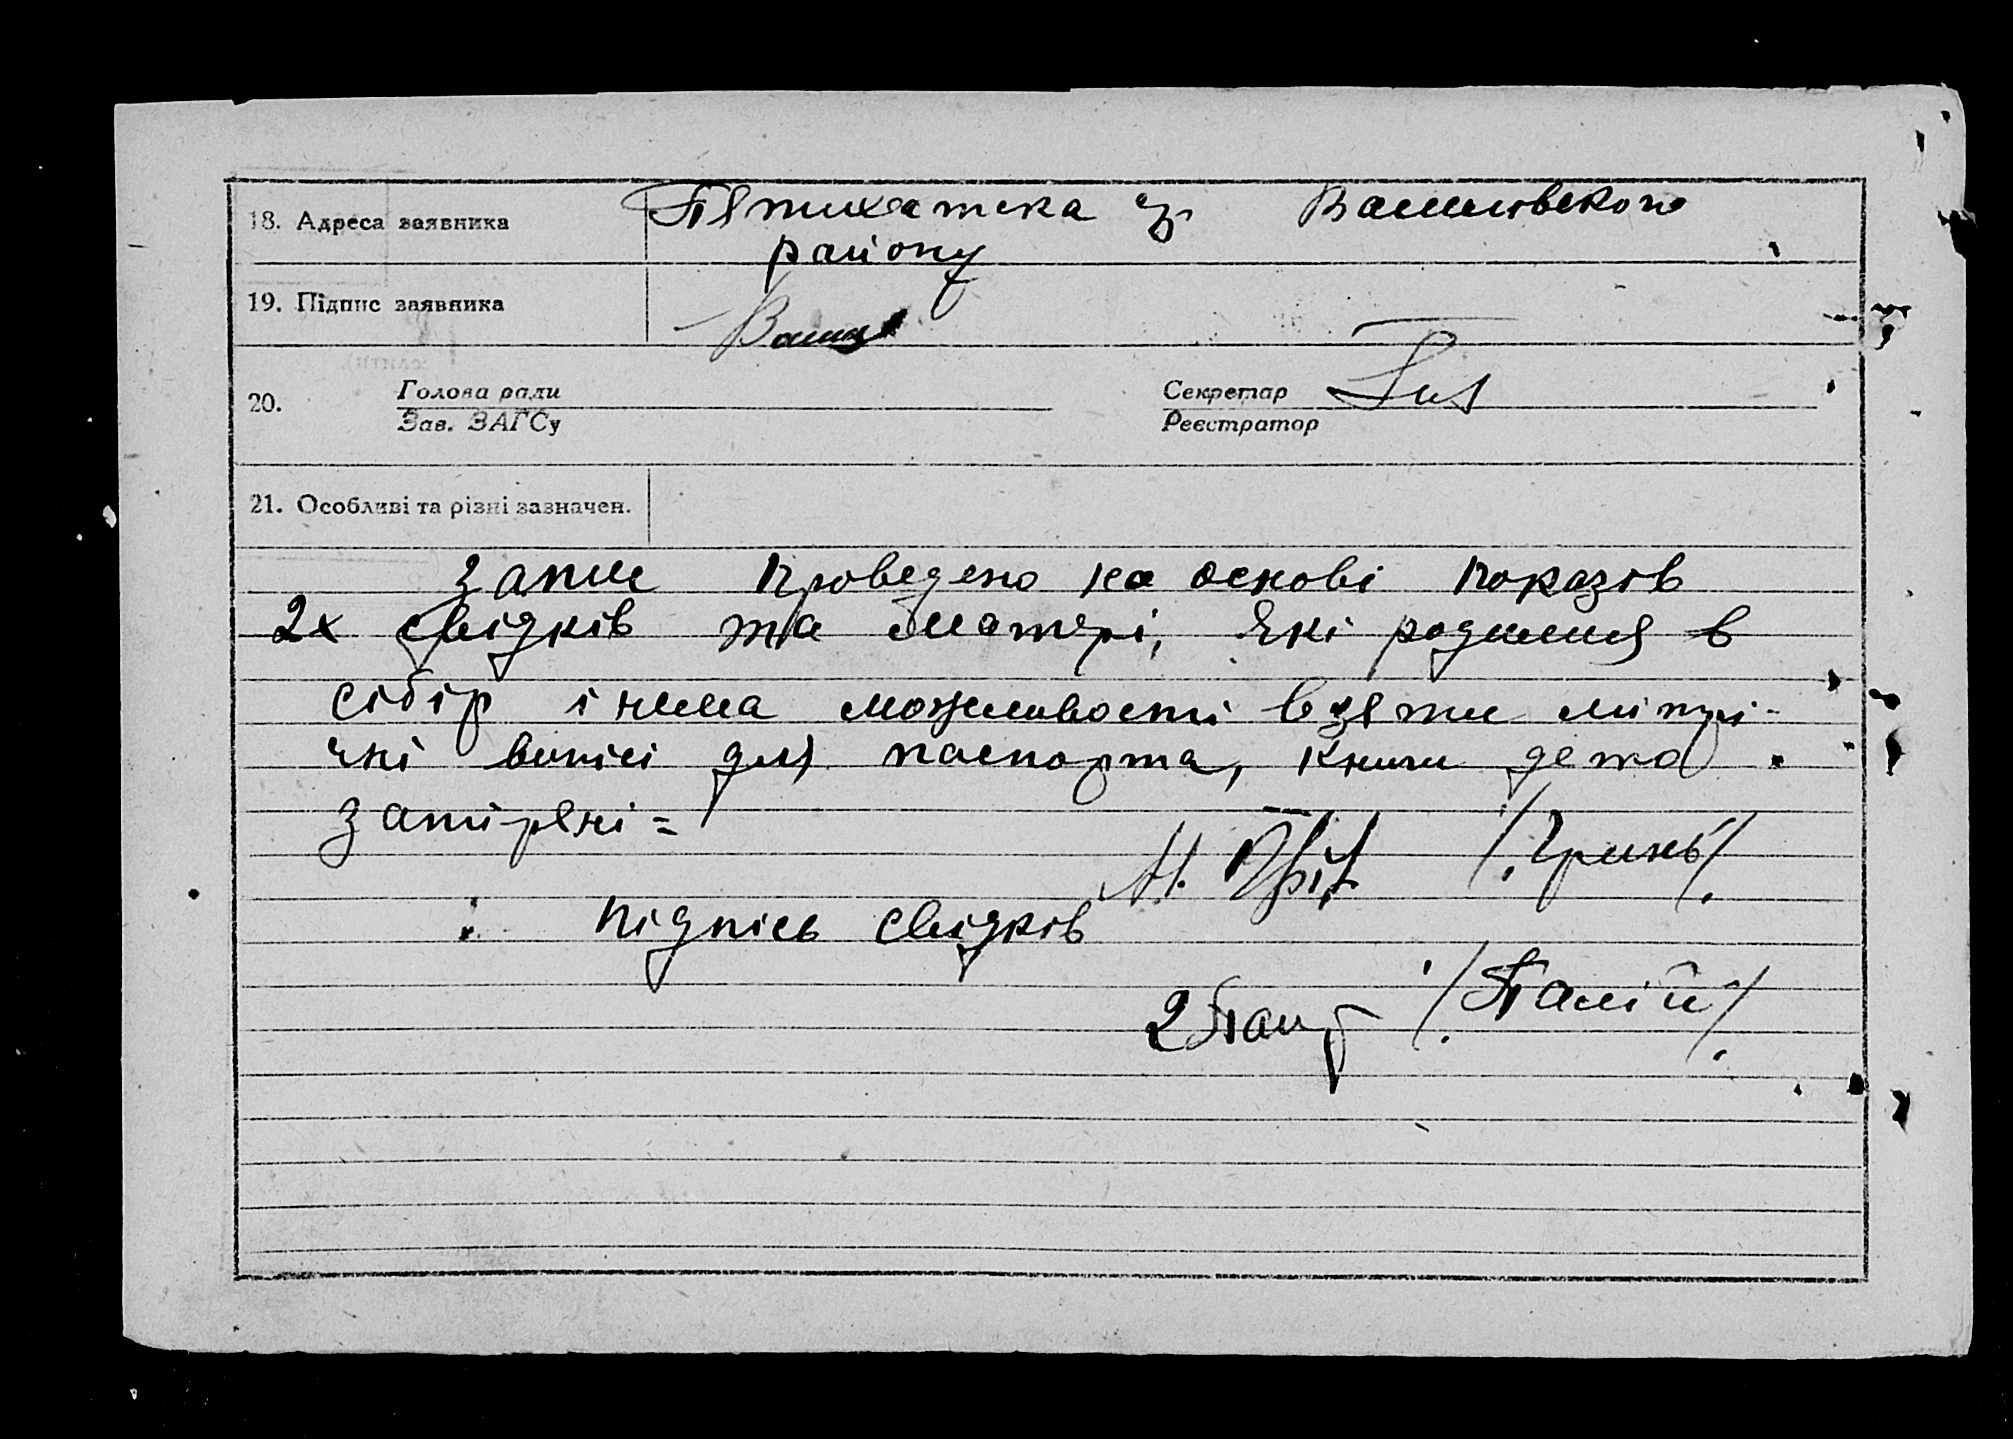 18. Адреса заявника Пятихатска Васильовского
району
19. Підпис заявника
20. Голова ради Секретар
Зав. ЗАГСу Реєстратор
21. Особливі та різні зазначен.
Запис проведено на основі показів
2х свідків та матері, які родилися в
сібір і нема можливості взяти мітрі-
чні вопісі для паспорта, книги дето
затіряні =
/. Гринь /.
підпісь свідків
2 /. Палій /.